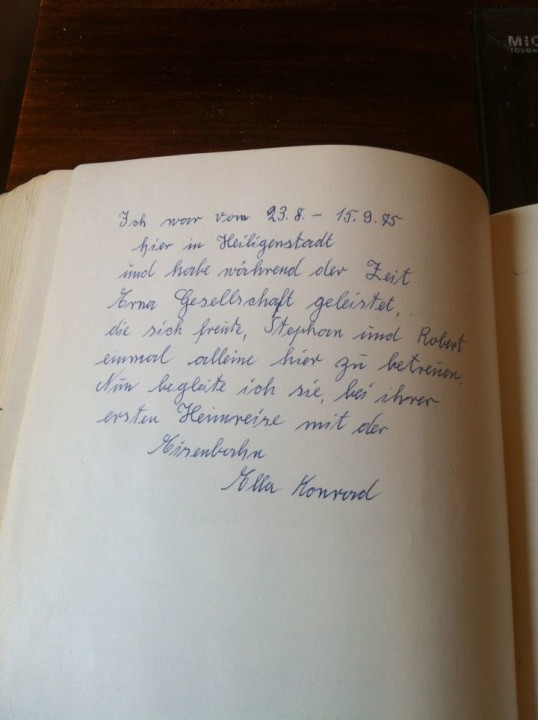 MIC
TOUGH
Ich war vom 23.8. - 15.9.75
hier in Heiligenstadt
und habe während der Zeit
Erna Gesellschaft geleistet,
die sich freute, Stephan und Robert
einmal alleine hier zu betreuen.
Nun begleite ich sie, bei ihrer
ersten Heimreise mit der
Eisenbahn
Ella Konrad